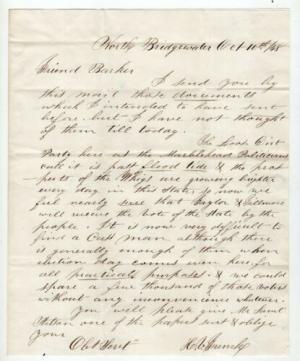 North Bridgewater Oct 10th /48
Friend Barker
I send you by
this mail those documents
which I intended to have sent
before but I have not thought
of them till today.
The Loco
here as the Marblehead
it is past flood tide & the pros-
pects of the Whigs are growing brighter
every day in this State, & now we
feel nearly sure that Taylor & Fillmore
will receive the vote of the State by the
people. It is now very difficult to
find a Cass man although there
is generally enough of them when
election day comes even here for
all practicable purposes. & we could
spare a few thousand of those votes
without any inconvenience whatever.
You will please give Mr
one of the papers sent & oblige
your
Obt Servt H.